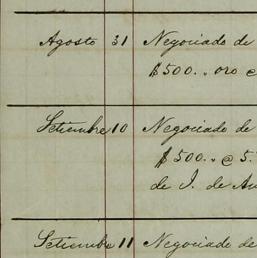 Agosto 31 Negociado de
$500.. oro @
Setiembre 10 Negociado de
$500.. @ 5.
de J. de
Setiembre 11 Negociado de